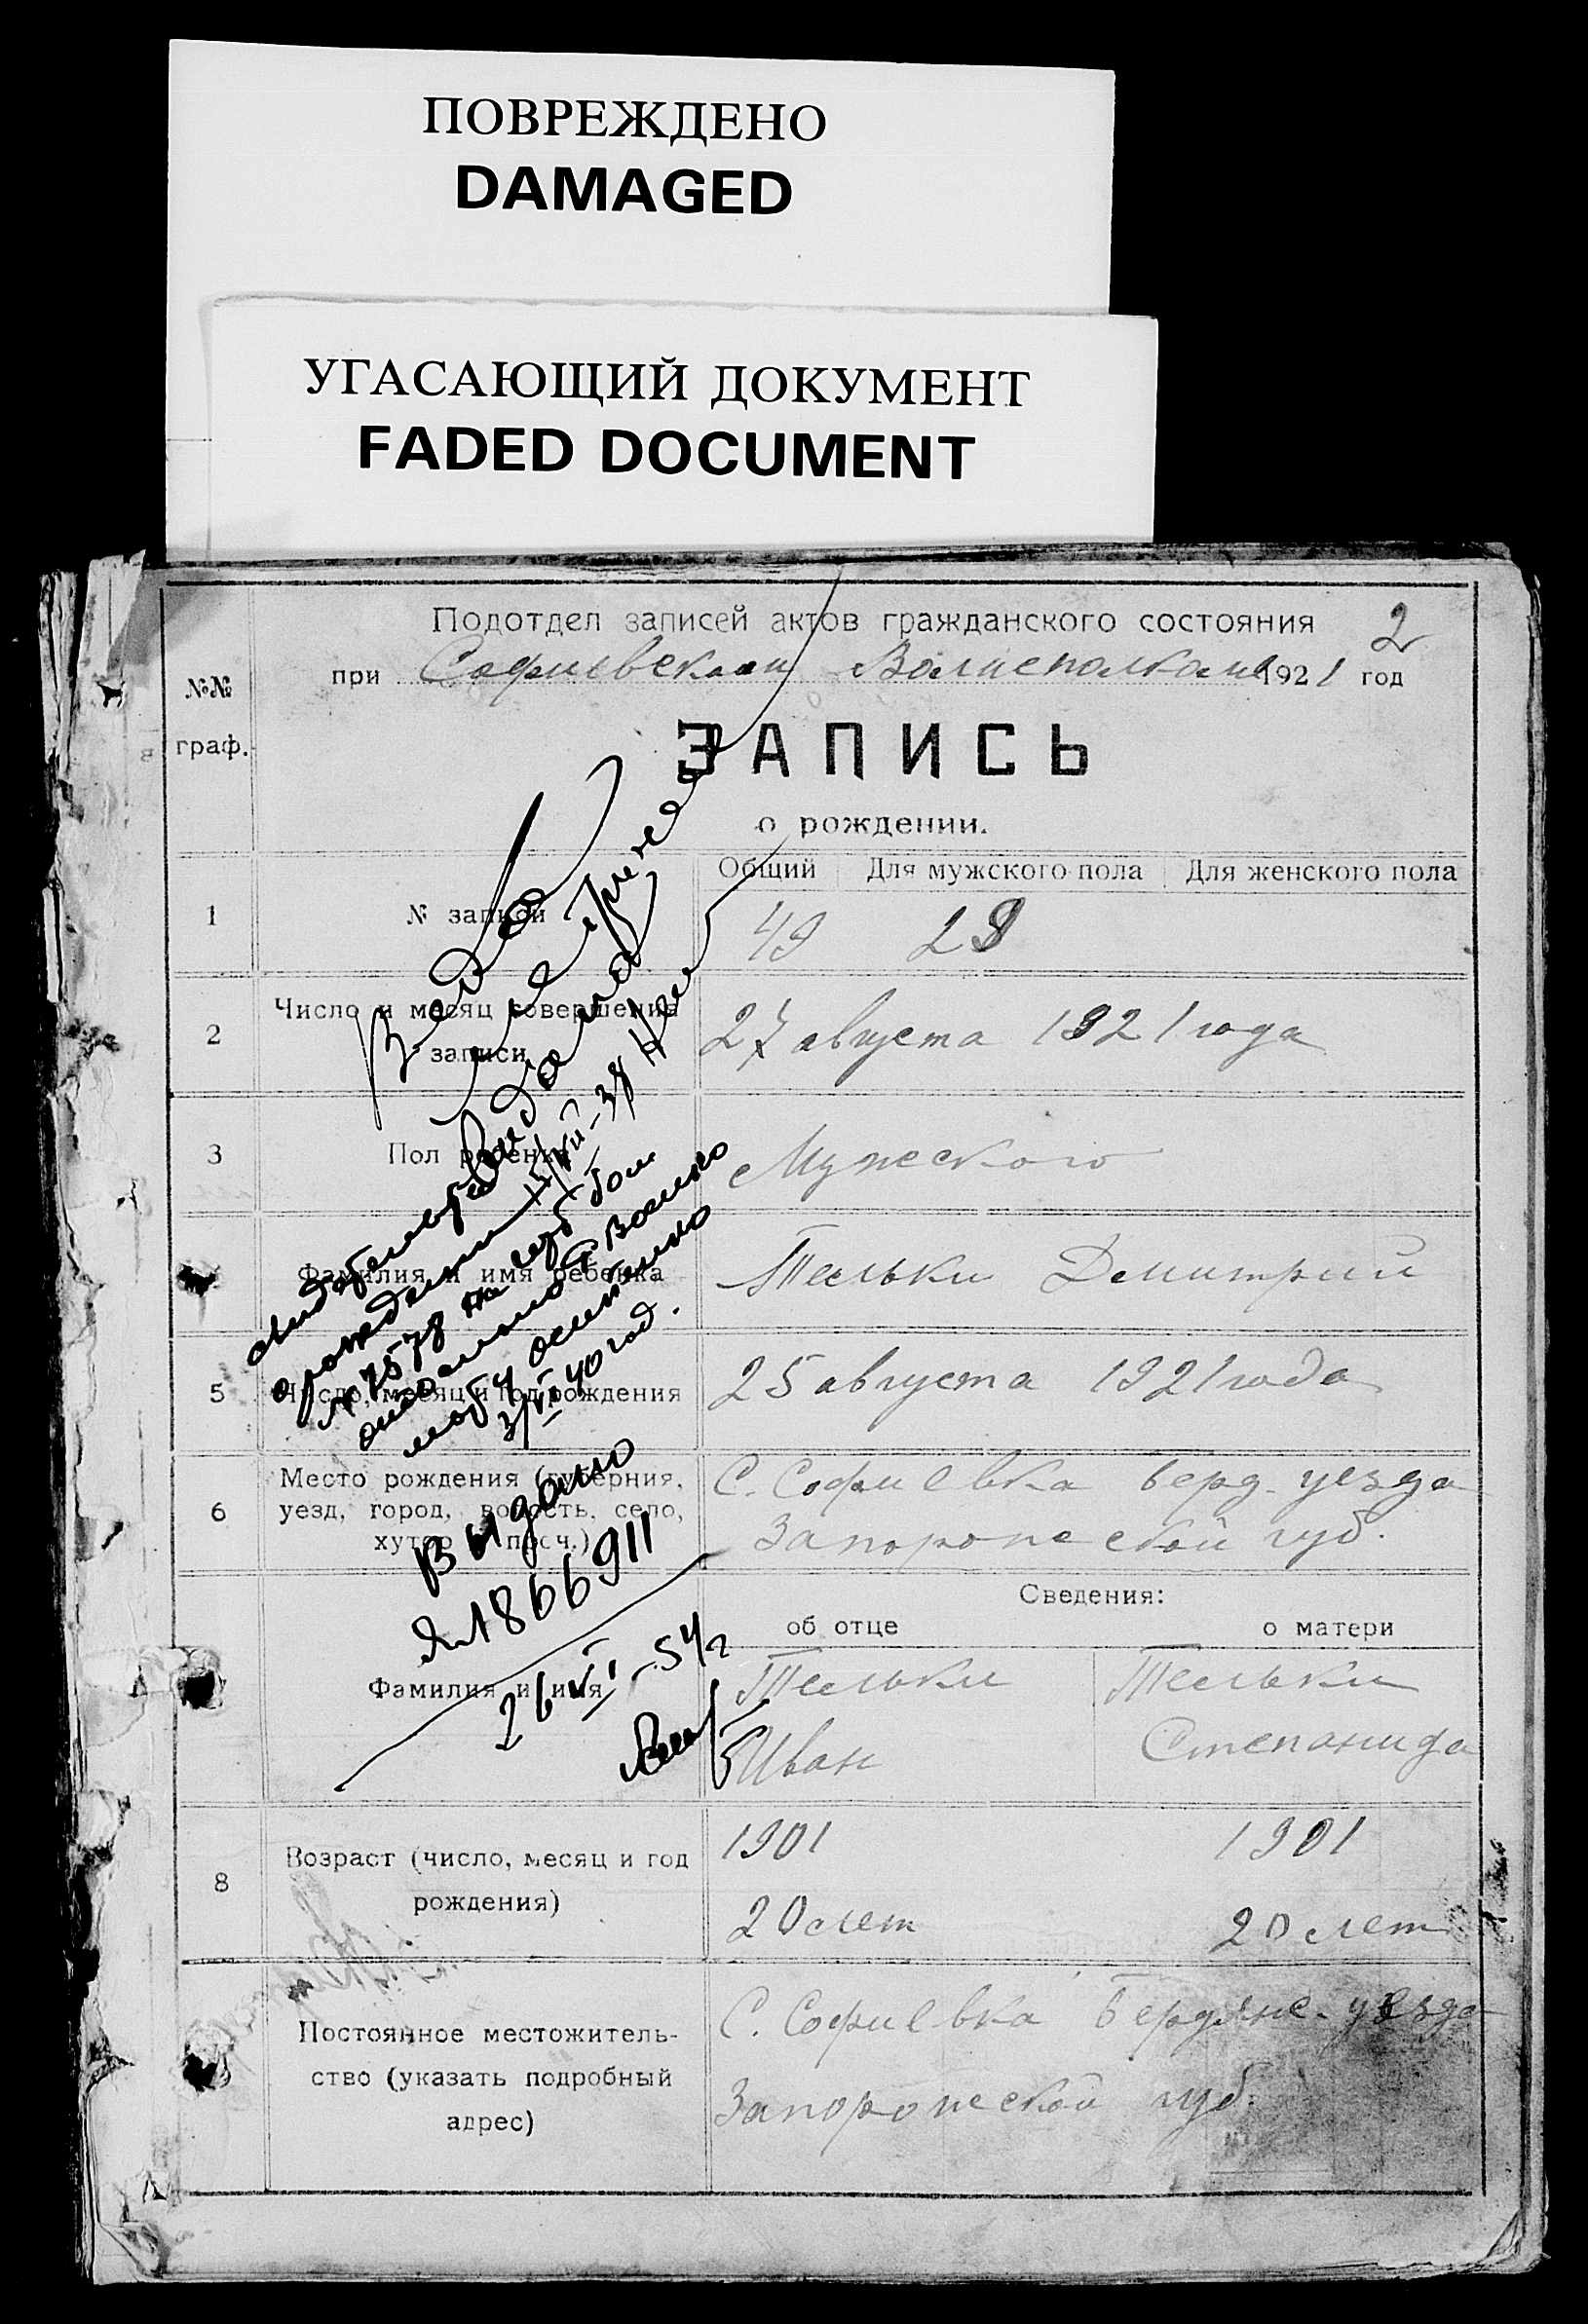 ПОВРЕЖДЕНО
DAMAGED
УГАСАЮЩИЙ ДОКУМЕНТ
FADED DOCUMENT
2
Подотдел записей актов гражданского состояния
при Софиевском Волисполкоме 1921 год
№№
граф.
ЗАПИСЬ
о рождении.
Общий Для мужского пола Для женского пола
1 № записи 49 29
2 Число и месяц совершения
записи 27 августа 1921 года
3 Пол ребенка Мужеского
Фамилия и имя ребенка Дмитрий
5 Число, месяц и год рождения 25 августа 1921 года
6 Место рождения (губерния,
уезд, город, волость, село,
хутор и проч.)
С. Софиевка Берд. уезда
Запорожской губ.
Сведения:
об отце о матери
Фамилия и имя
Иван Степанида
8 Возраст (число, месяц и год
рождения)
1901 1901
20 лет 20 лет
Постоянное местожитель-
ство (указать подробный
адрес)
С. Софиевка Бердянс. уезда
Запорожской губ.
свидетельство
о рождении
3/VI 40 год.
Выдано
1866911
26 VI - 54 г